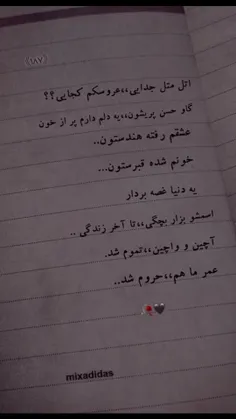 (۱۸۷)
اتل متل جدایی،،عروسکم کجایی؟؟
گاو حسن پریشون،،یه دلم دارم پر از خون
عشقم رفته هندستون..
خونم شده قبرستون...
یه دنیا غصه بردار
اسمشو بزار بچگی،،تا آخر زندگی ..
آچین و واچین،،تموم شد.
عمر ما هم،،حروم شد..
mixadidas